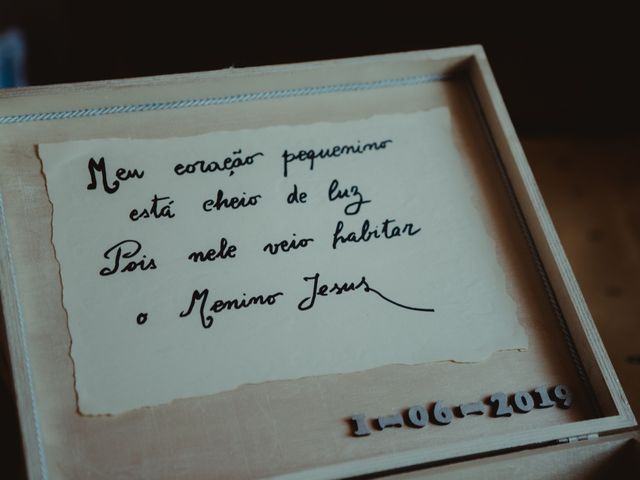 Meu coração pequenino
está cheio de luz
Pois nele veio habitar
o Menino Jesus
1-06-2019